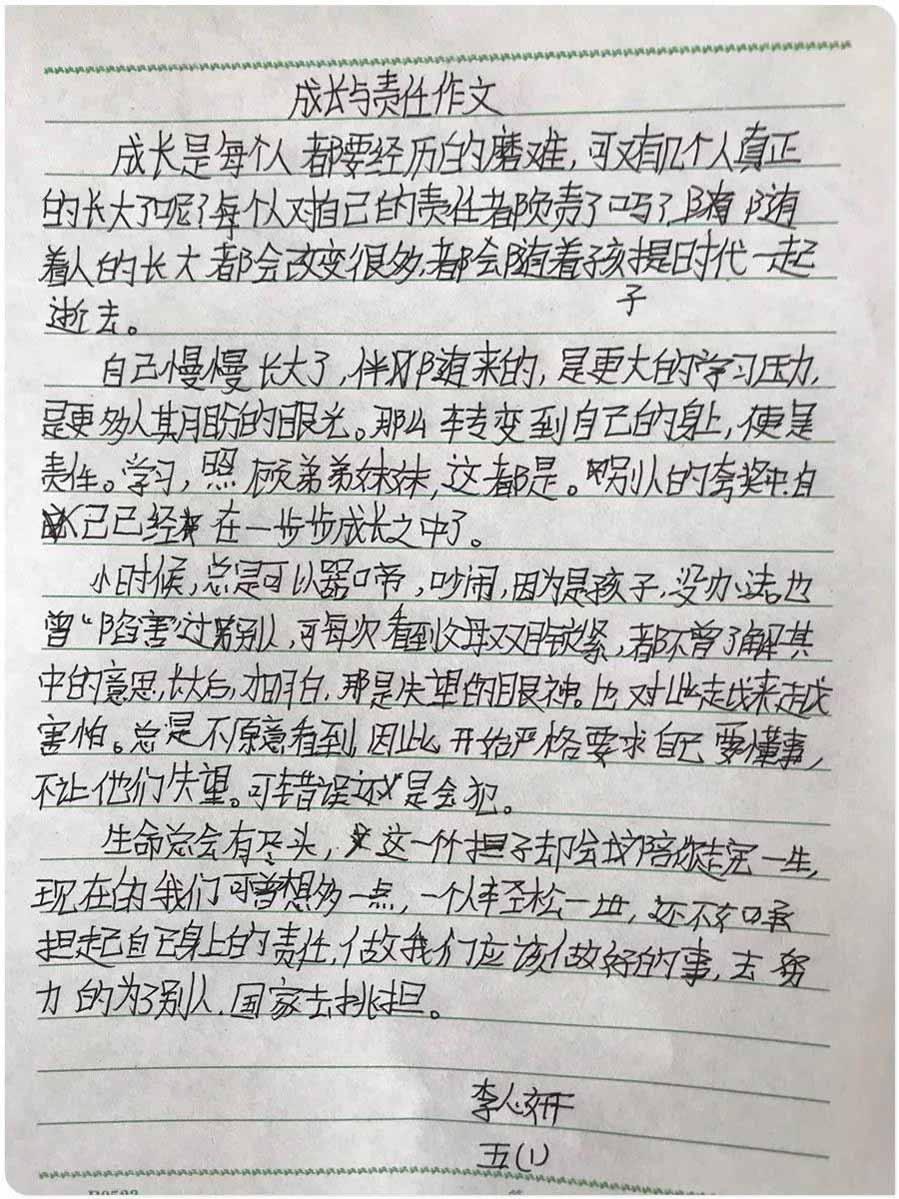 成长与责任作文
成长是每个人都要经历的磨难，可又有几个人真正
的长大了呢？每个人对自己的责任都负责了吗？随着
着人的长大都会改变很多，都会随着孩提时代一起
子
逝去。
自己慢慢长大了，伴随来的，是更大的学习压力，
是更多人期盼的眼光。那么转变到自己的身上，便是
责任。学习，照顾弟弟妹妹，这都是。别人的夸奖中自
己已经在一步步成长之中了。
小时候，总是可以哭啼，吵闹，因为是孩子，没办法。也
曾“陷害”过别人，可每次看到父母双眼锁紧，都不曾了解其
中的意思，长大后，才明白，那是失望的眼神。也对此越来越
害怕。总是不愿意看到，因此开始严格要求自己要懂事，
不让他们失望。可错误还是会犯。
生命总会有尽头，这一份担子却会陪你走完一生，
现在的我们可曾想多一点，一个人轻松一些，还不如承
担起自己身上的责任，做我们应该做好的事，去努
力的为了别人，国家去挑担。
李心妍
五(1)